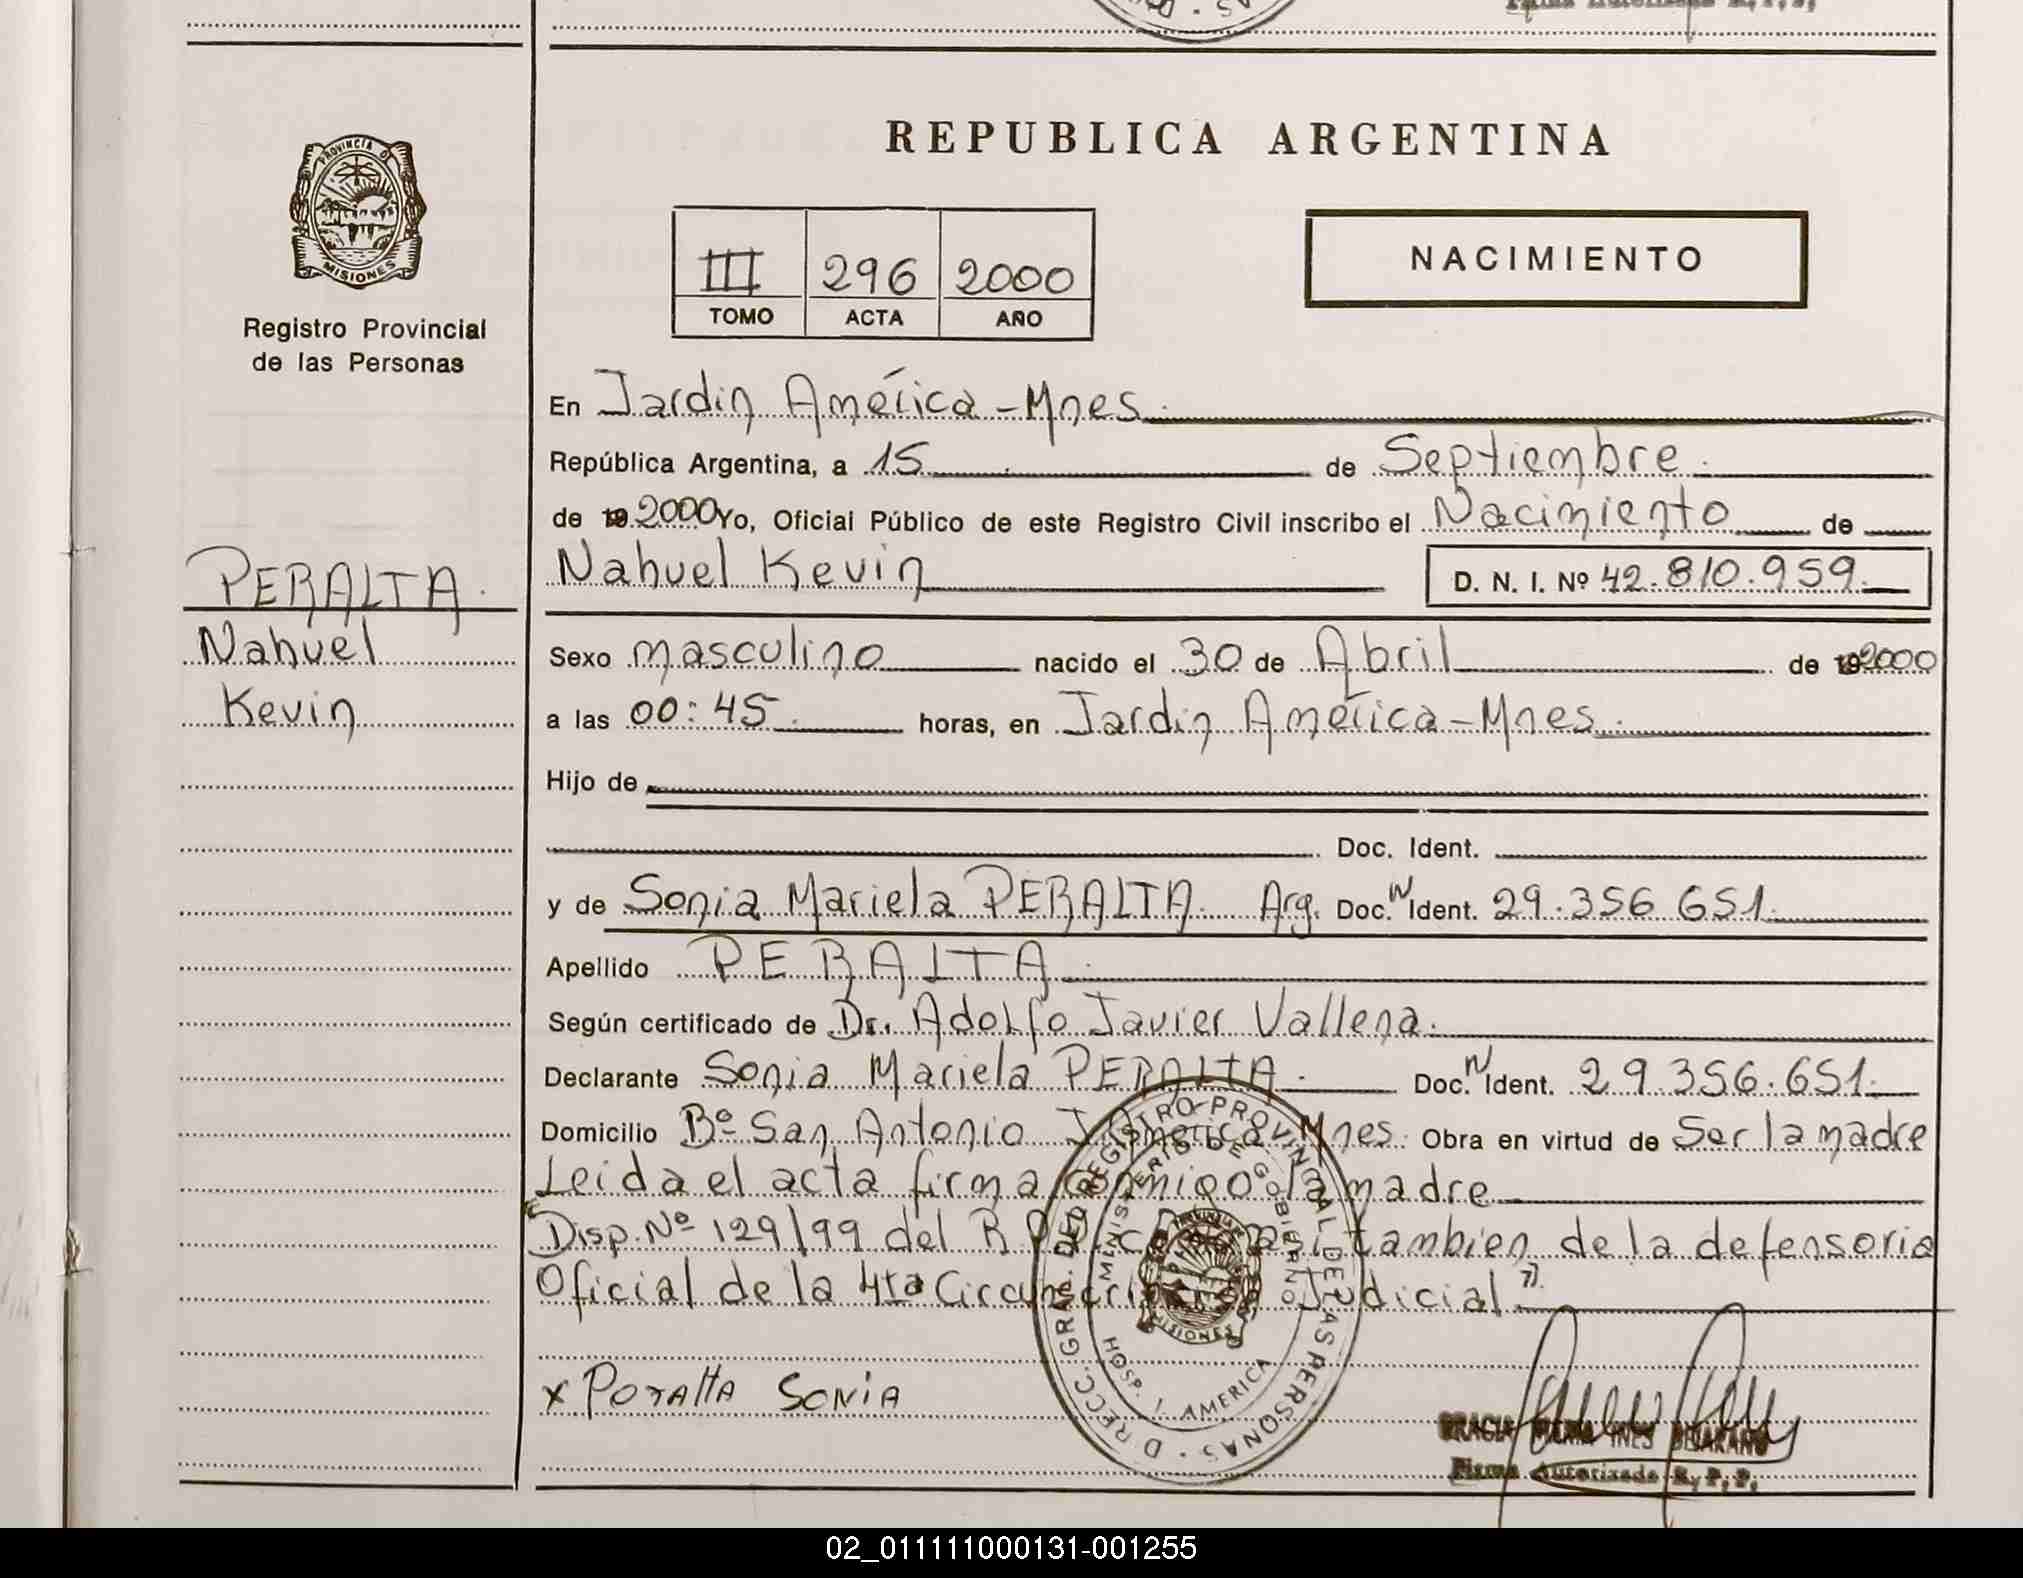 REPUBLICA ARGENTINA
PROVINCIA D
MISIONES
Registro Provincial
de las Personas
III 296 2000
TOMO ACTA AÑO
NACIMIENTO
En Jardin América - Mnes.
República Argentina, a 15 de Septiembre.
de 19 2000 Yo, Oficial Público de este Registro Civil inscribo el Nacimiento de
PERALTA.
Nahuel
Kevin
Nahuel Kevin D. N. I. Nº 42.810.959.
Sexo masculino nacido el 30 de Abril de 19 2000
a las 00:45. horas, en Jardin América - Mnes.
Hijo de
Doc. Ident.
y de Sonia Mariela PERALTA. Arg. Doc. N Ident. 29.356 651.
Apellido PERALTA.
Según certificado de Dr. Adolfo Javier Vallena.
Declarante Sonia Mariela PERALTA. Doc. N Ident. 29.356.651.
Domicilio Bº San Antonio J. América Mnes. Obra en virtud de Ser la madre
Leida el acta firma conmigo la madre
"Disp. Nº 129/99 del R. asi tambien de la defensoria
Oficial de la 4ta Circunscripcion Judicial".
x Peralta Sonia
DIRECC. GRAL. DEL REGISTRO PROVINCIAL DE LAS PERSONAS
MINISTERIO DE GOBIERNO
MISIONES
HOSP. J. AMERICA
GRACIA MARIA INES BEJARANO
Firma Autorizada R. P. P.
02_011111000131-001255